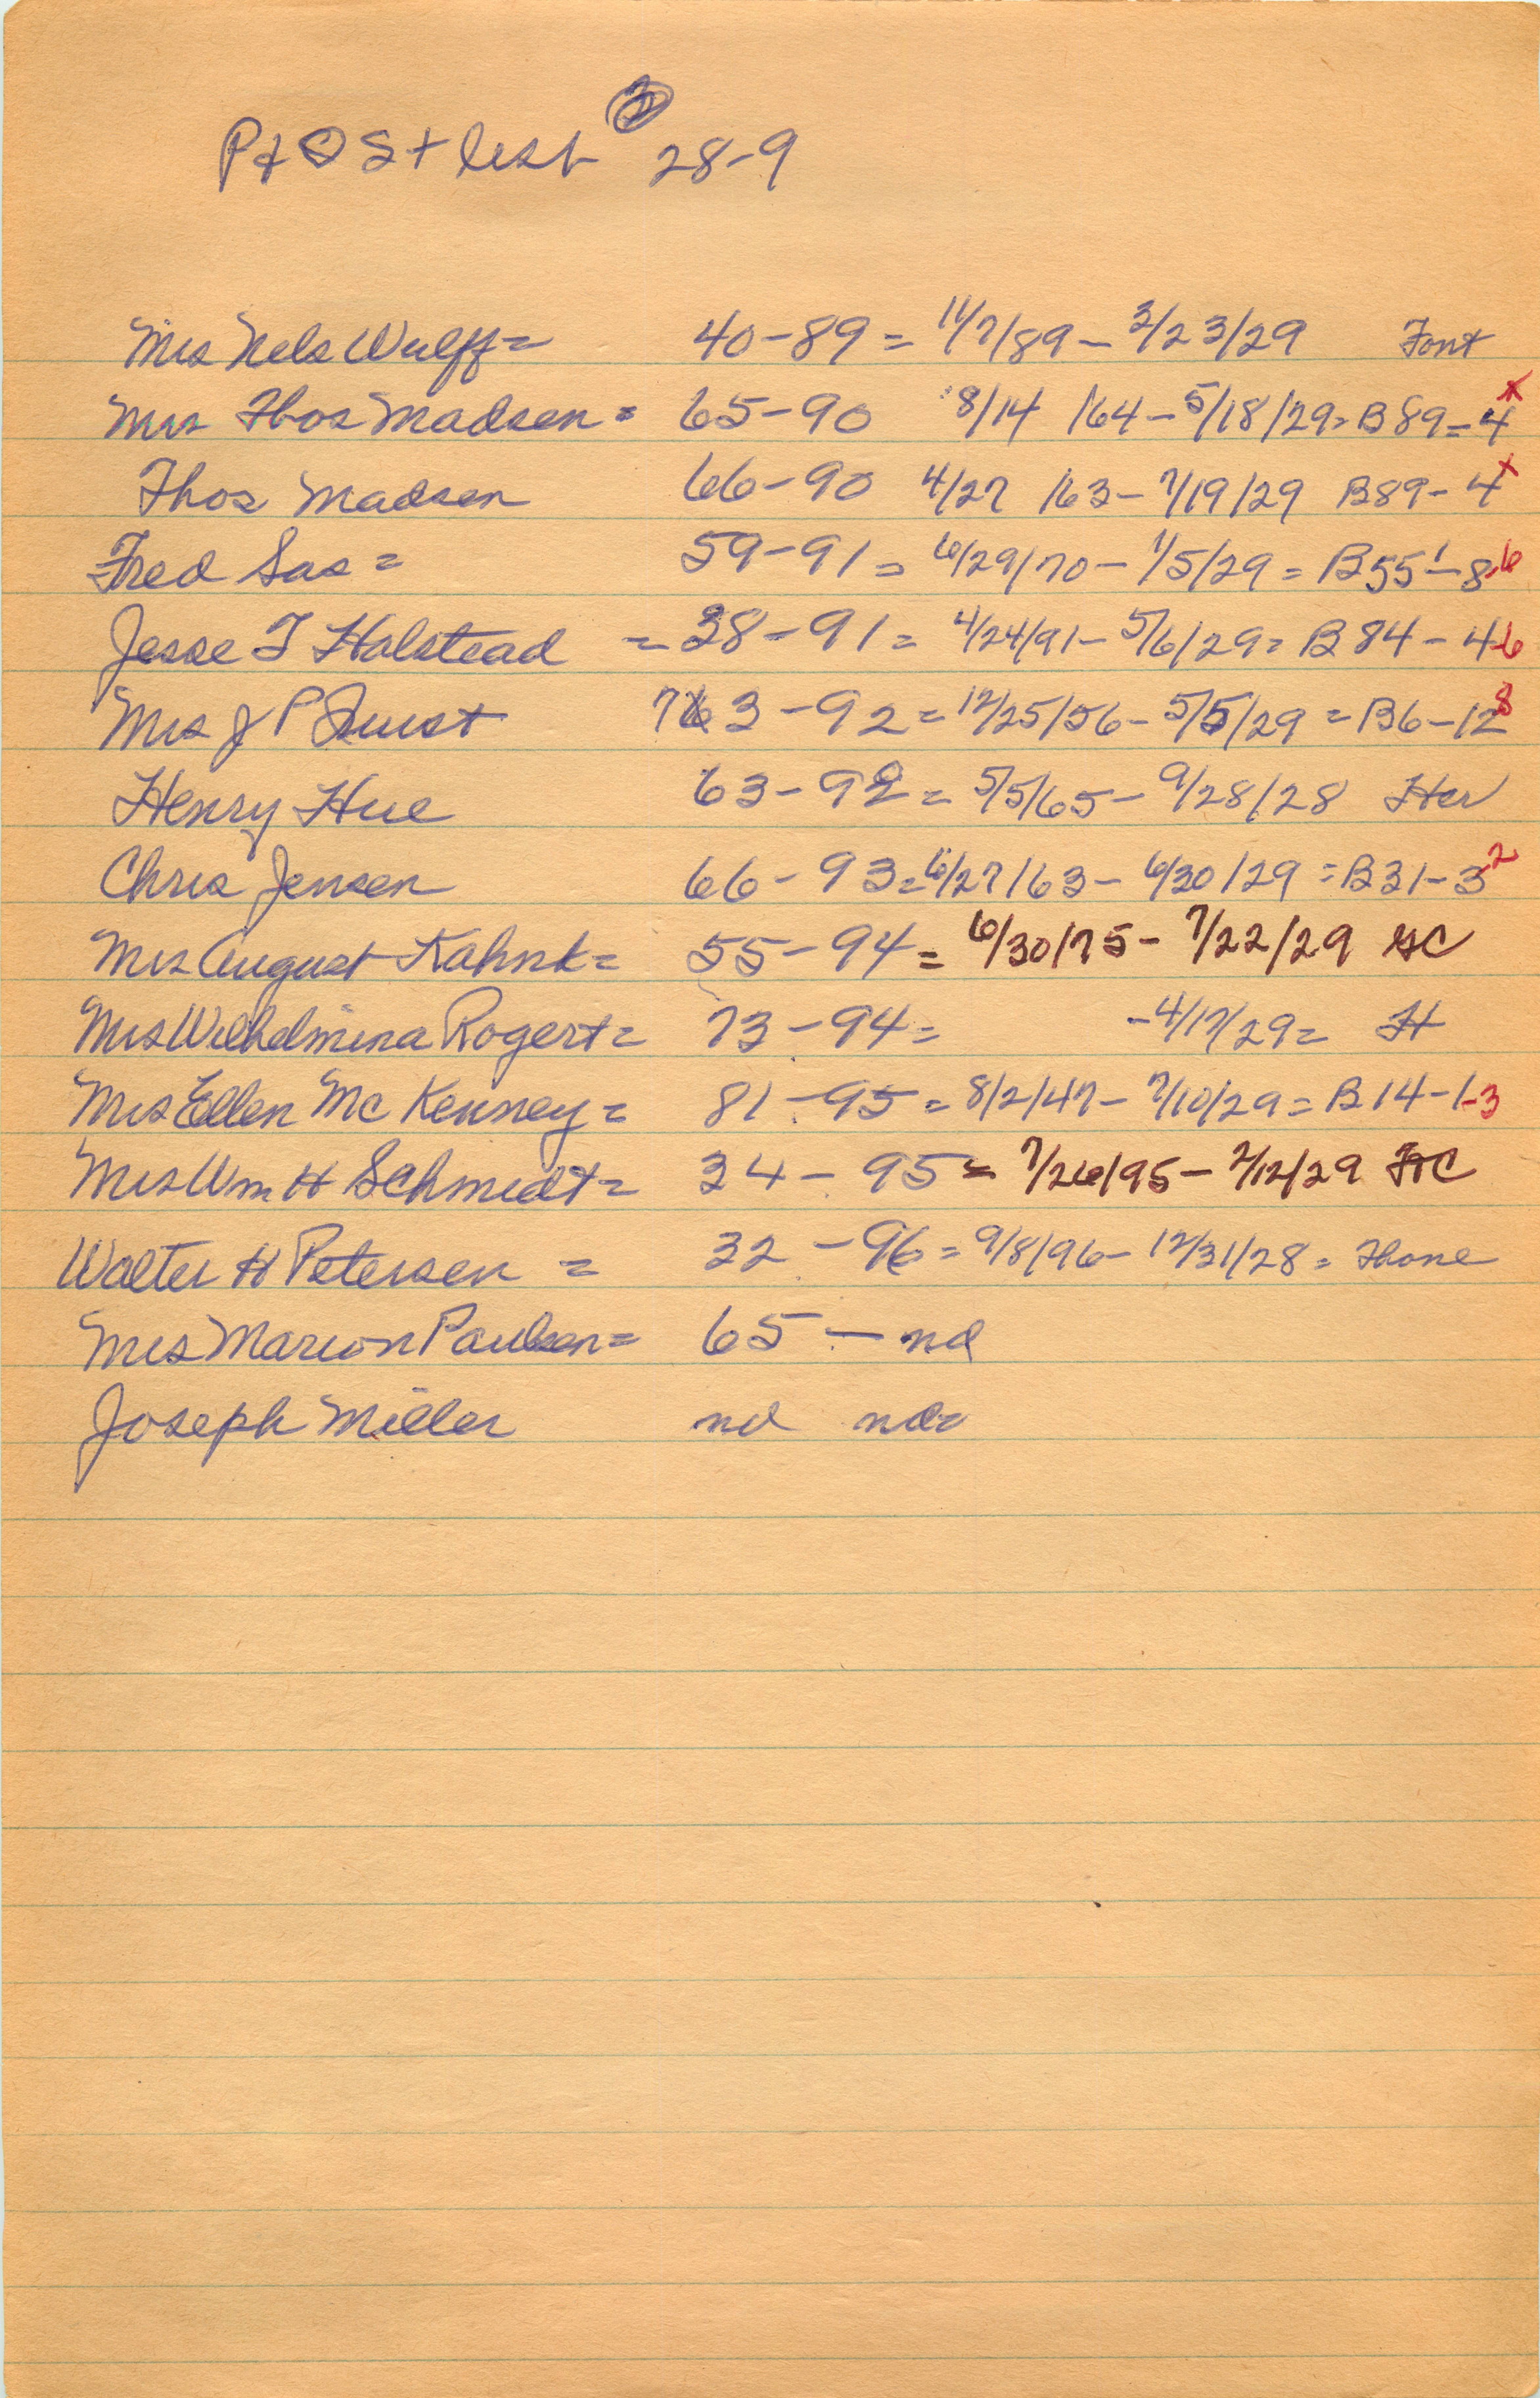 P + O S + lest 28-9
Mrs Nels Wulff = 40-89 = 11/7/89 - 2/23/29 Font
Mrs Thos Madsen = 65-90 8/14/64 - 5/18/29 = B89-4 x
Thos Madsen 66-90 4/27/63 - 7/19/29 B89-4 x
Fred Sas = 59-91 = 6/29/70 - 1/5/29 = B55-8-6
Jesse T Halstead = 38-91 = 4/24/91 - 5/6/29 = B84-4-6
Mrs J P 73-92 = 12/25/56 - 5/5/29 = B6-12 8
Henry Hue 63-92 = 5/5/65 - 9/28/28
Chris Jensen 66-93 = 6/27/63 - 6/30/29 = B31-3 2
Mrs August Kahnk = 55-94 = 6/30/75 - 7/22/29 GC
Mrs Wilhelmina Rogert = 73-94 = -4/17/29 = H
Mrs Ellen Mc Kenney = 81-95 = 8/2/47 - 7/10/29 = B14-1-3
Mrs Wm H Schmidt = 34-95 = 7/26/95 - 2/12/29
Walter H Petersen = 32-96 = 9/8/96 - 12/31/28 =
Mrs Marion Paulsen = 65 - nd
Joseph Miller nd nd=